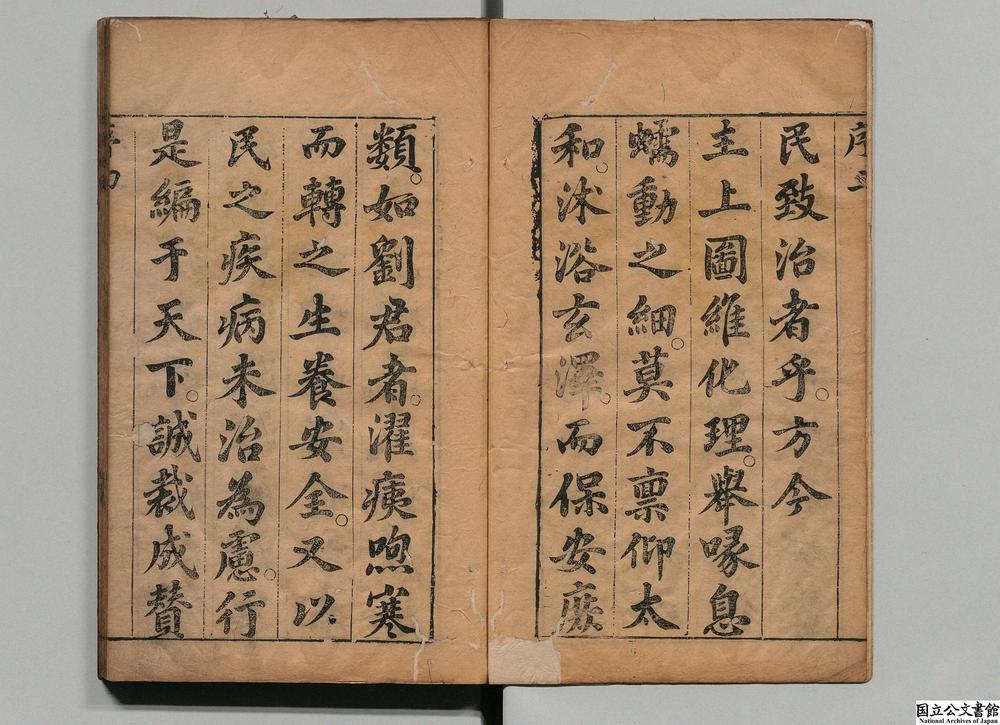 民致治者乎。方今
主上圖維化理。舉喙息
蠕動之細。莫不禀仰太
和。沐浴玄澤。而保安厥
類。如劉君者。濯痍煦寒
而轉之生養安全。又以
民之疾病未治為慮。行
是編于天下。誠裁成贊
国立公文書館
National Archives of Japan